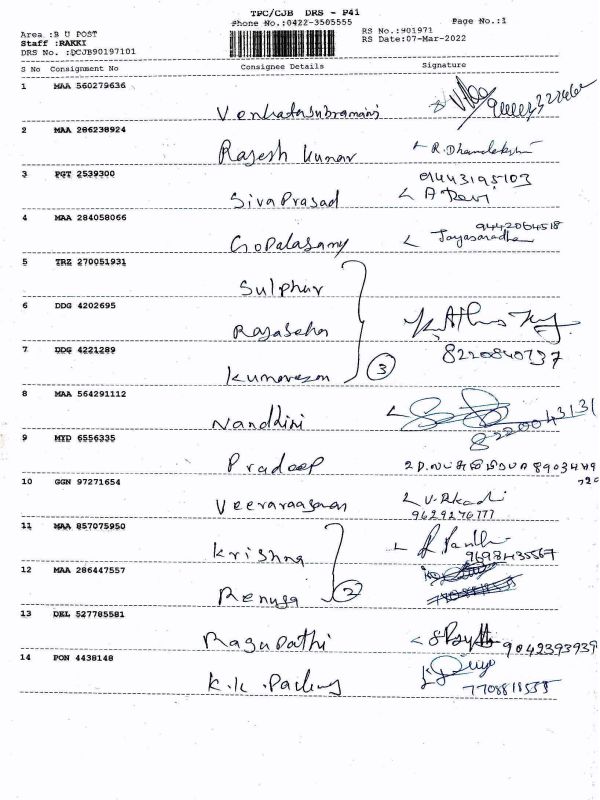 TPC/CJB DRS - P41
Phone No.:0422-3505555
Page No.:1
Area :B U POST
RS No.:901971
Staff :RAKKI
RS Date:07-Mar-2022
DRS No. :DCJB90197101
S No Consignment No Consignee Details Signature
1 MAA 560279636 Venkatasubramani
2 MAA 286238924 Rajesh Kumar R.Dhanalakshmi
3 PGT 2539300 Siva Prasad 9443195103
A Devi
4 MAA 284058066 Gopalasamy 9442064518
Jayasaradha
5 TRZ 270051931 Sulphur
6 DDG 4202695 Rajasekar
7 DDG 4221289 Kumaresan 3 8220840737
8 MAA 564291112 Nanddini 8220043131
9 MYD 6556335 Pradeep
10 GGN 97271654 Veeraraagavan
9629276777
11 MAA 857075950 Krishna 9698435567
12 MAA 286447557 Renuga 2
13 DEL 527785581 Ragupathi 9042393939
14 PON 4438148 K.K.Packing
7708818555